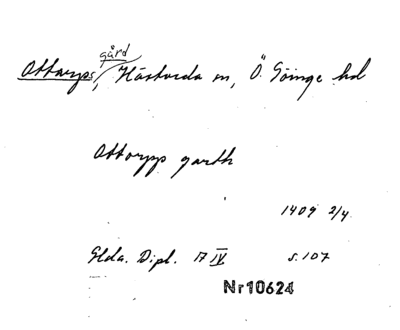 Ottarps gård, Hästveda sn, Ö. Göinge hd
Ottorpp garth
1409 2/4
Glda. Dipl. 17 IV s. 107
Nr 10624